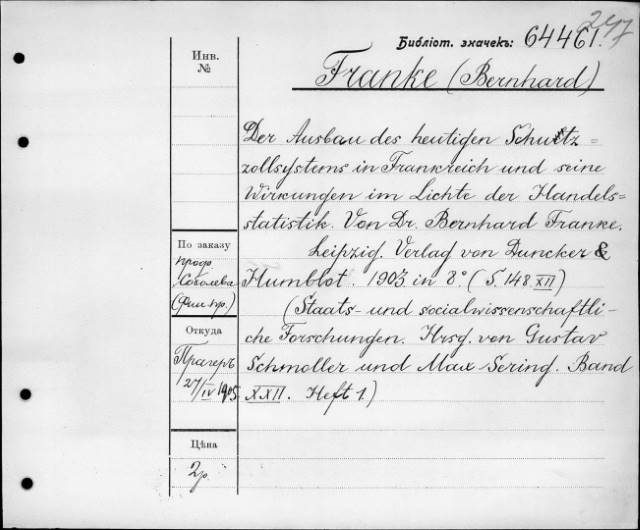 247
Библіот. значекъ: 64461.
Franke (Bernhard)
Инв.
№
Der Ausbau des heutigen Schutz=
zollsystems in Frankreich und seine
Wirkungen im Lichte der Handels=
statistik. Von Dr. Bernhard Franke.
Leipzig. Verlag von Duncker &
Humblot. 1903 in 8° (S. 148 XII)
(Staats- und socialwissenschaftli-
che Forschungen. Hrsg. von Gustav
Schmoller und Max Sering. Band
XXII. Heft 1)
По заказу
проф.
Соколова
Откуда
Прагеръ
27/IV 1905
Цѣна
2р.